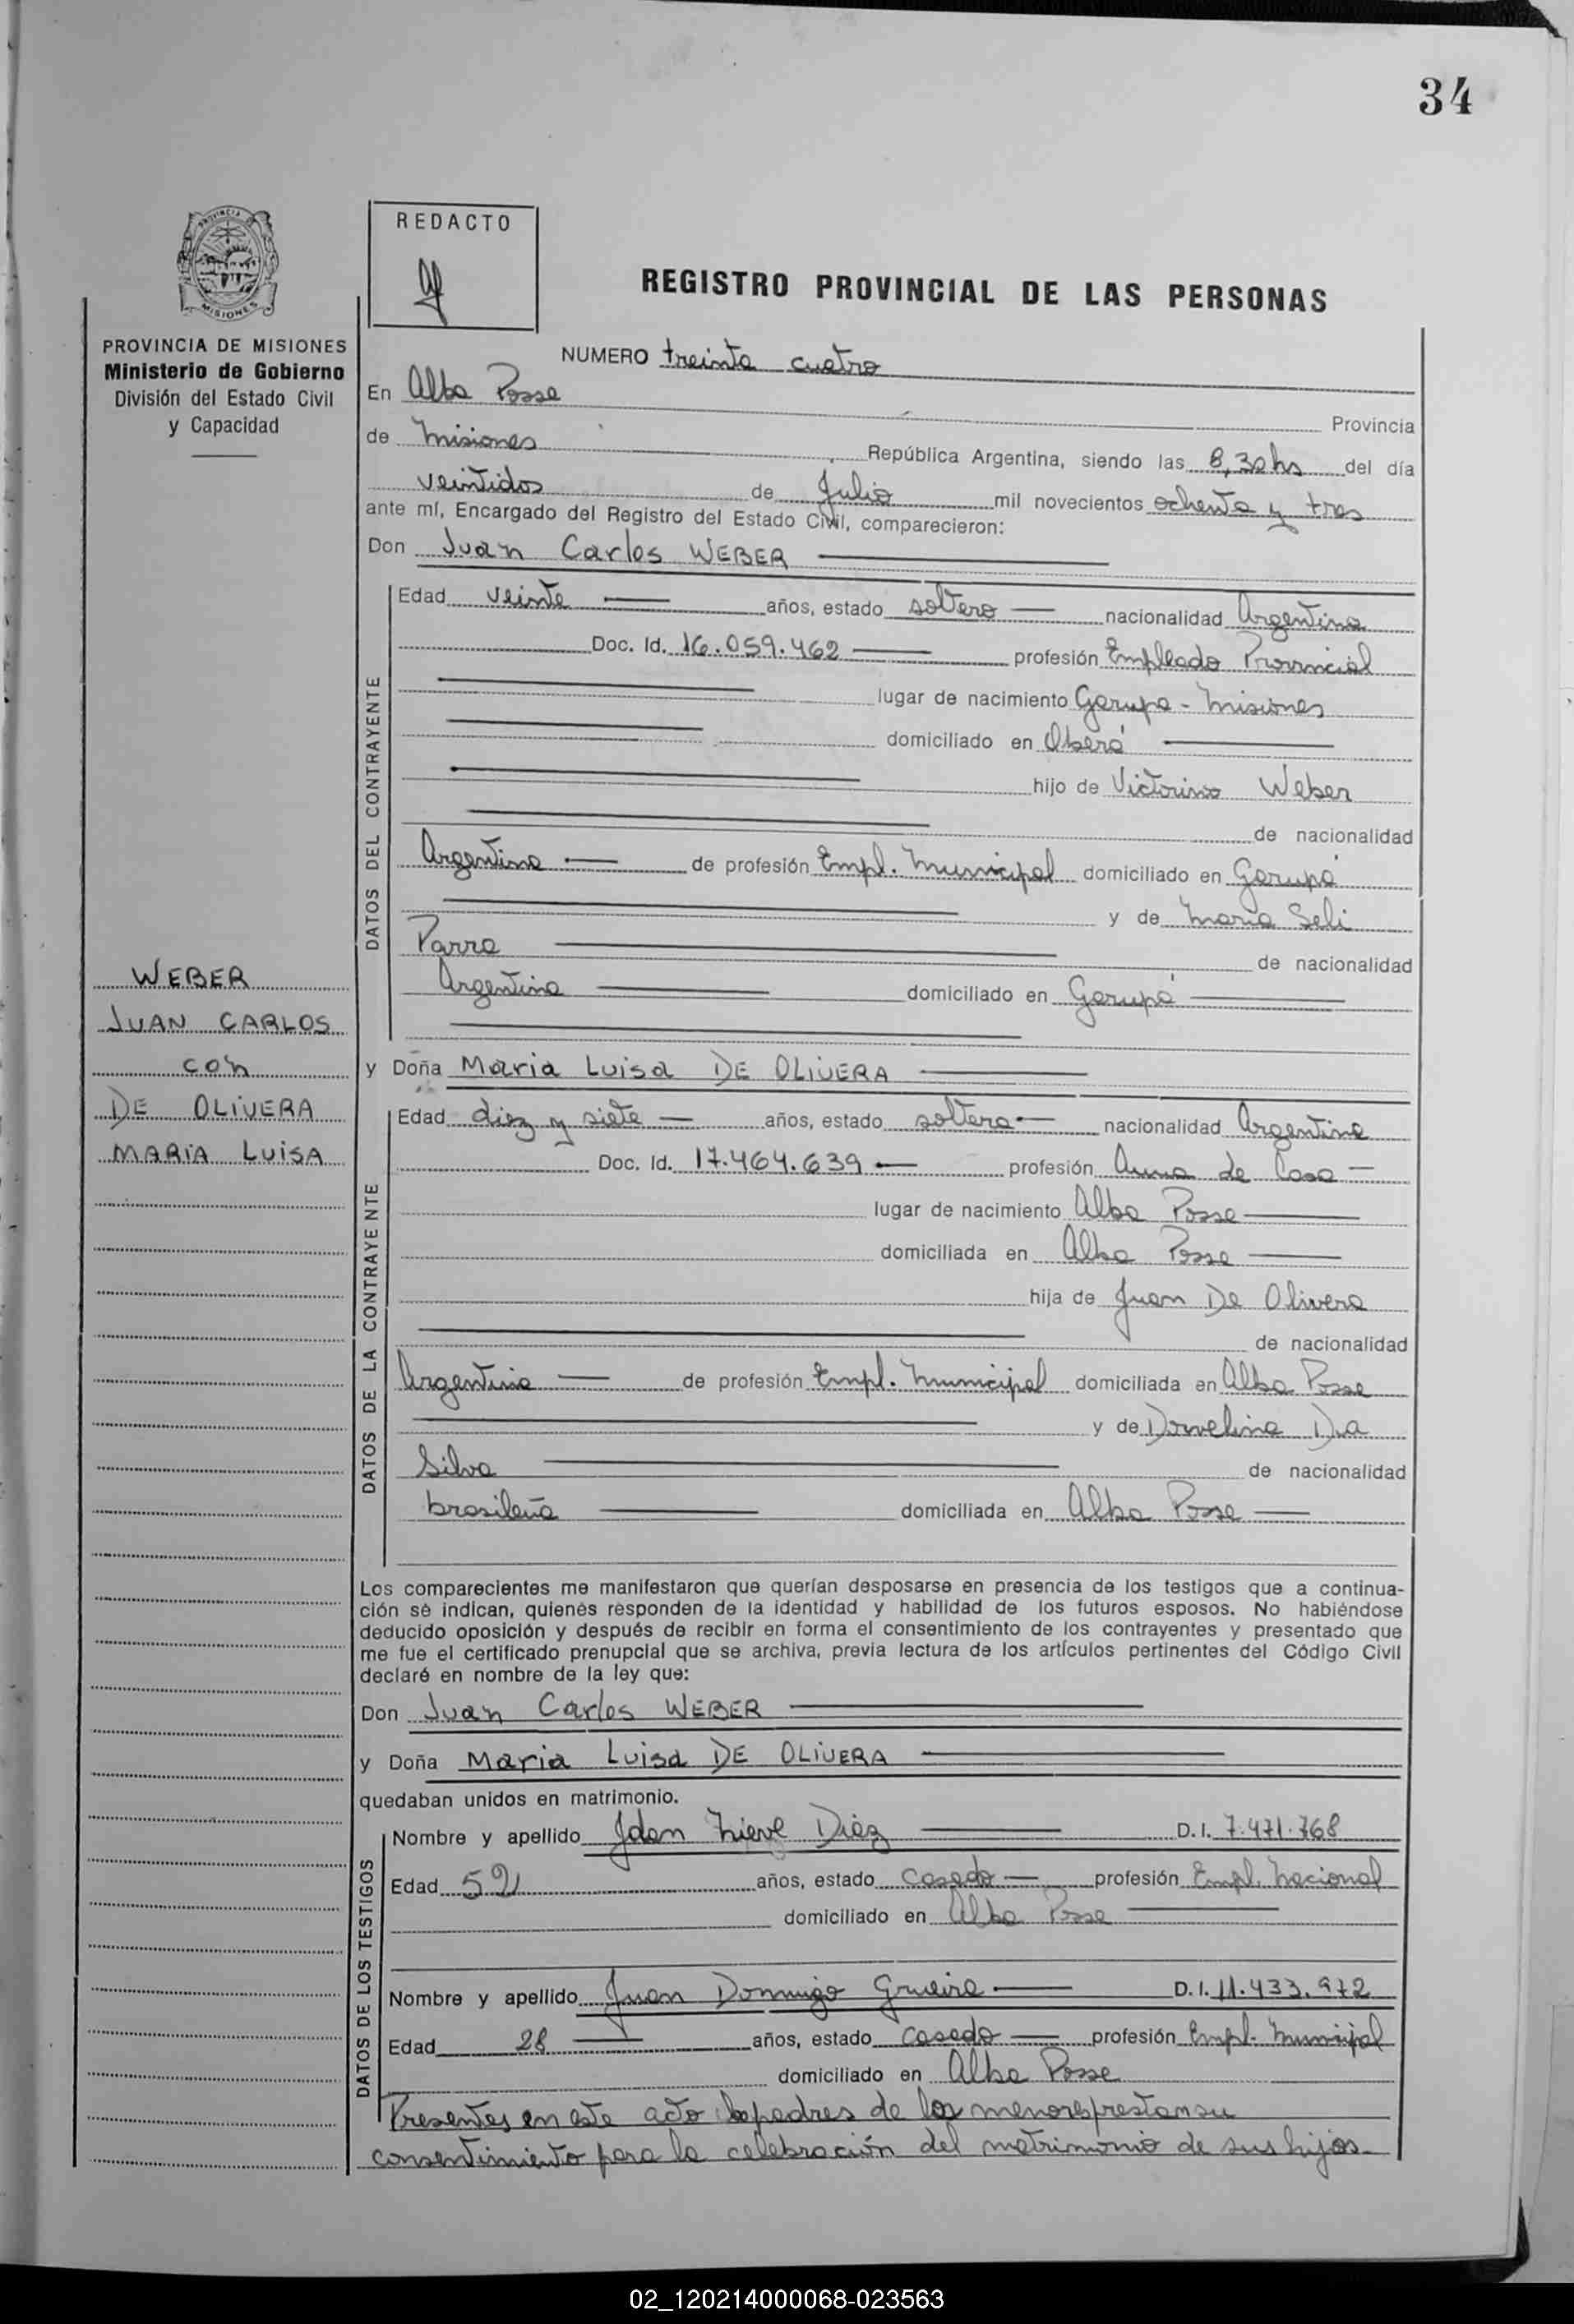 34
PROVINCIA DE MISIONES
Ministerio de Gobierno
División del Estado Civil
y Capacidad
WEBER
JUAN CARLOS
con
DE OLIVERA
MARIA LUISA
REDACTO
REGISTRO PROVINCIAL DE LAS PERSONAS
NUMERO treinta cuatro
En Alba Posse Provincia
de Misiones, República Argentina, siendo las 8,30 hs del día
veintidos de Julio mil novecientos ochenta y tres
ante mí, Encargado del Registro del Estado Civil, comparecieron:
Don Juan Carlos WEBER
DATOS DEL CONTRAYENTE
Edad veinte años, estado soltero nacionalidad Argentina
Doc. Id. 16.059.462 profesión Empleado Provincial
lugar de nacimiento Garupa - Misiones
domiciliado en Oberá
hijo de Victorino Weber
de nacionalidad
Argentina de profesión Empl. Municipal domiciliado en Garupá
y de Maria Seli
Parra de nacionalidad
Argentina domiciliado en Garupá
y Doña Maria Luisa DE OLIVERA
DATOS DE LA CONTRAYENTE
Edad diez y siete años, estado soltera nacionalidad Argentina
Doc. Id. 17.464.639 profesión Ama de Casa
lugar de nacimiento Alba Posse
domiciliada en Alba Posse
hija de Juan De Olivera
de nacionalidad
Argentina de profesión Empl. Municipal domiciliada en Alba Posse
y de Dorvelina Da
Silva de nacionalidad
brasileña domiciliada en Alba Posse
Los comparecientes me manifestaron que querían desposarse en presencia de los testigos que a continua-
ción se indican, quienes responden de la identidad y habilidad de los futuros esposos. No habiéndose
deducido oposición y después de recibir en forma el consentimiento de los contrayentes y presentado que
me fue el certificado prenupcial que se archiva, previa lectura de los artículos pertinentes del Código Civil
declaré en nombre de la ley que:
Don Juan Carlos WEBER
y Doña Maria Luisa DE OLIVERA
quedaban unidos en matrimonio.
DATOS DE LOS TESTIGOS
Nombre y apellido Diez D. I. 7.471.768
Edad 52 años, estado casado profesión Empl. Nacional
domiciliado en Alba Posse
Nombre y apellido Juan Domingo D. I. 11.433.972
Edad 28 años, estado casado profesión Empl. Municipal
domiciliado en Alba Posse
Presentes en este acto los padres de los menores prestan su
consentimiento para la celebración del matrimonio de sus hijos.
02_120214000068-023563